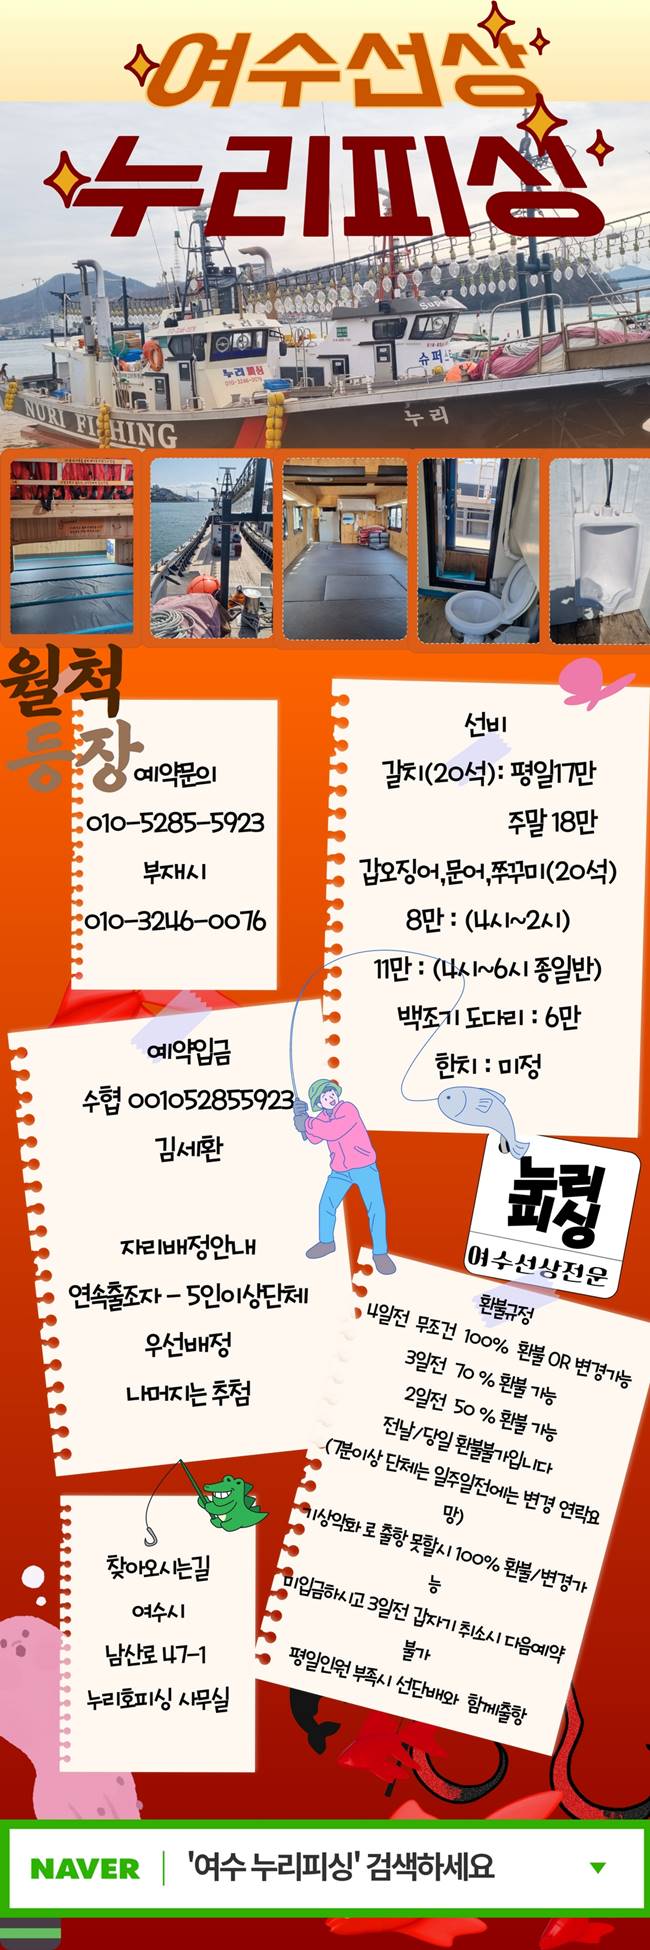 여수선상
누리피싱
누리피싱
010-3246-0076
슈퍼
NURI FISHING
누리
월척
등장
예약문의
010-5285-5923
부재시
010-3246-0076
선비
갈치(20석): 평일17만
주말 18만
갑오징어,문어,쭈꾸미(20석)
8만 : (4시~2시)
11만 : (4시~6시 종일반)
백조기 도다리 : 6만
한치 : 미정
예약입금
수협 001052855923
김세환
자리배정안내
연속출조자 - 5인이상단체
우선배정
나머지는 추첨
누리
피싱
여수선상전문
환불규정
4일전 무조건 100% 환불 OR 변경가능
3일전 70 % 환불 가능
2일전 50 % 환불 가능
전날/당일 환불불가입니다
(7분이상 단체는 일주일전에는 변경 연락요
망)
기상악화 로 출항 못할시 100% 환불/변경가
능
미입금하시고 3일전 갑자기 취소시 다음예약
불가
평일인원 부족시 선단배와 함께출항
찾아오시는길
여수시
남산로 47-1
누리호피싱 사무실
NAVER
'여수 누리피싱' 검색하세요